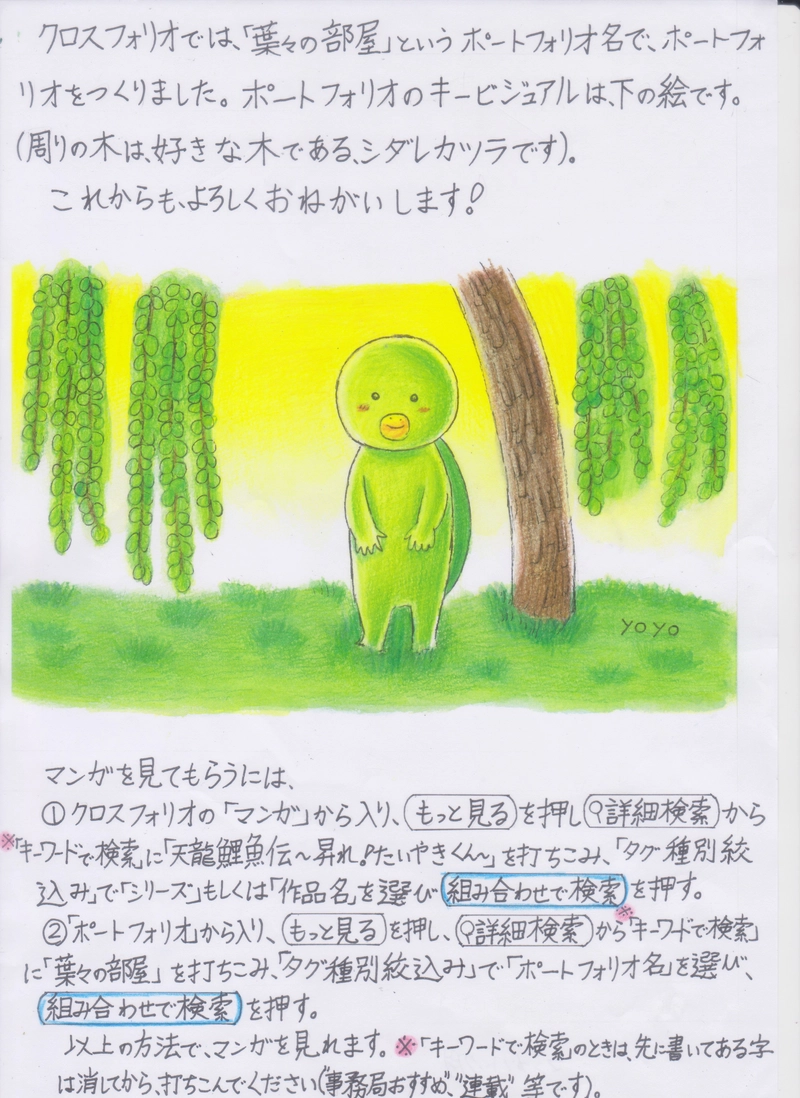 クロスフォリオでは、「葉々の部屋」というポートフォリオ名で、ポートフォ
リオをつくりました。ポートフォリオのキービジュアルは、下の絵です。
(周りの木は、好きな木である、シダレカツラです)。
これからも、よろしくおねがいします!
yoyo
マンガを見てもらうには、
①クロスフォリオの「マンガ」から入り、(もっと見る)を押し(詳細検索)から
※「キーワードで検索」に「天龍鯉魚伝〜昇れ!たいやきくん〜」を打ちこみ、「タグ種別絞
込み」で「シリーズ」もしくは「作品名」を選び組み合わせで検索を押す。
②「ポートフォリオ」から入り、(もっと見る)を押し、(詳細検索)から※「キーワードで検索」
に「葉々の部屋」を打ちこみ、「タグ種別絞込み」で「ポートフォリオ名」を選び、
組み合わせで検索を押す。
以上の方法で、マンガを見れます。※「キーワードで検索」のときは、先に書いてある字
は消してから、打ちこんでください("事務局おすすめ"、"連載"等です)。